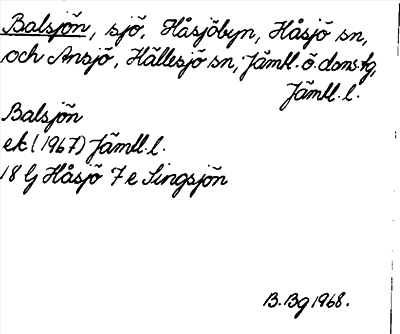 Balsjön, sjö, Håsjöbyn, Håsjö sn,
och Ansjö, Hällesjö sn, Jämtl. ö. domstg,
Jämtl. l.
Balsjön
ek (1967) Jämtl. l.
18 G Håsjö 7 e Singsjön
B. Bg 1968.